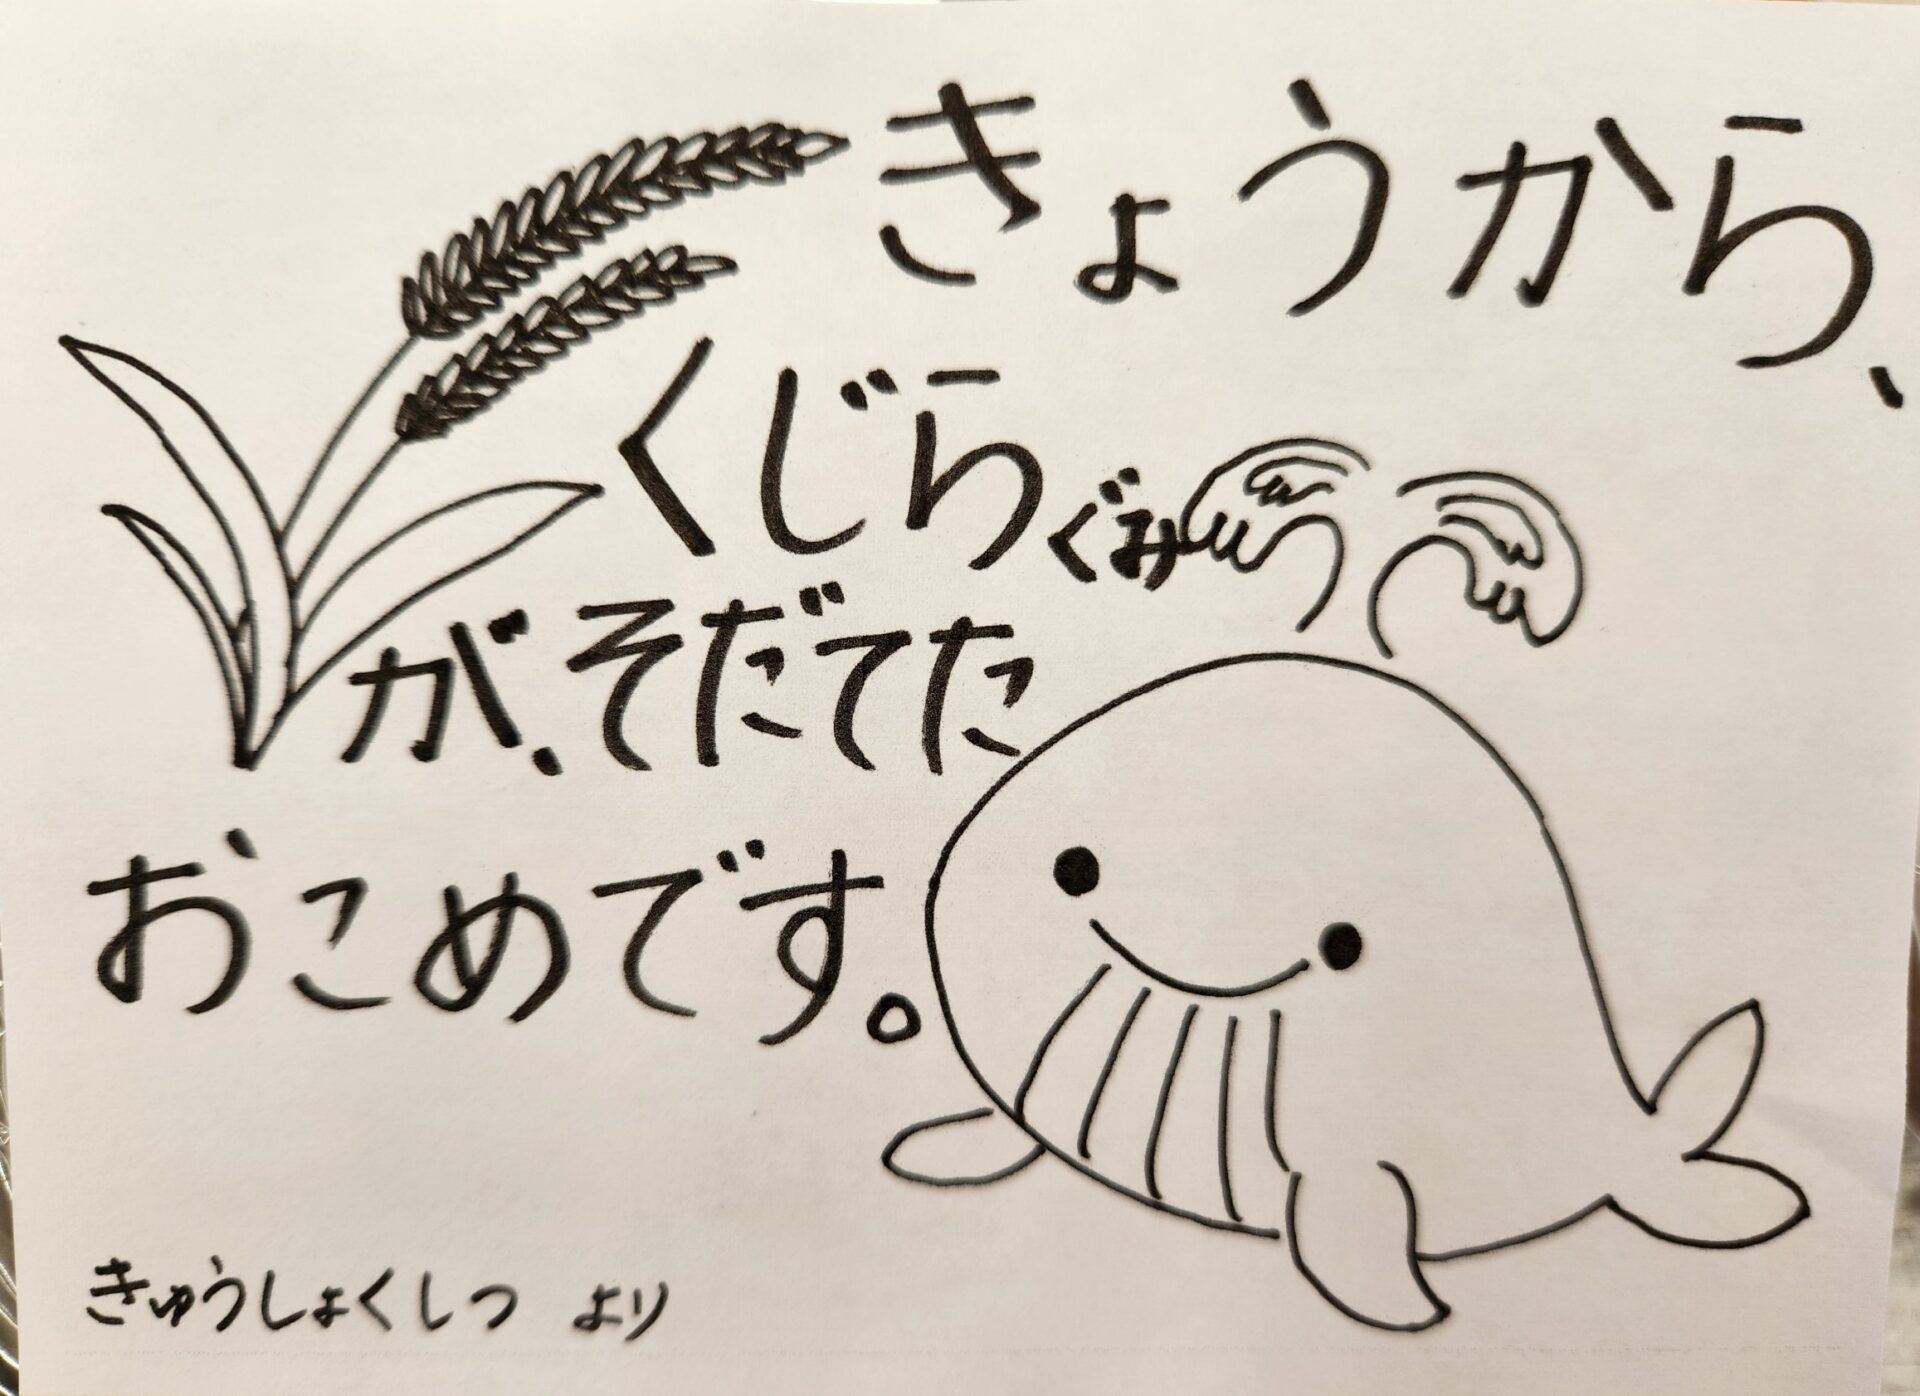 きょうから、
くじらぐみ
が、そだてた
おこめです。
きゅうしょくしつ より